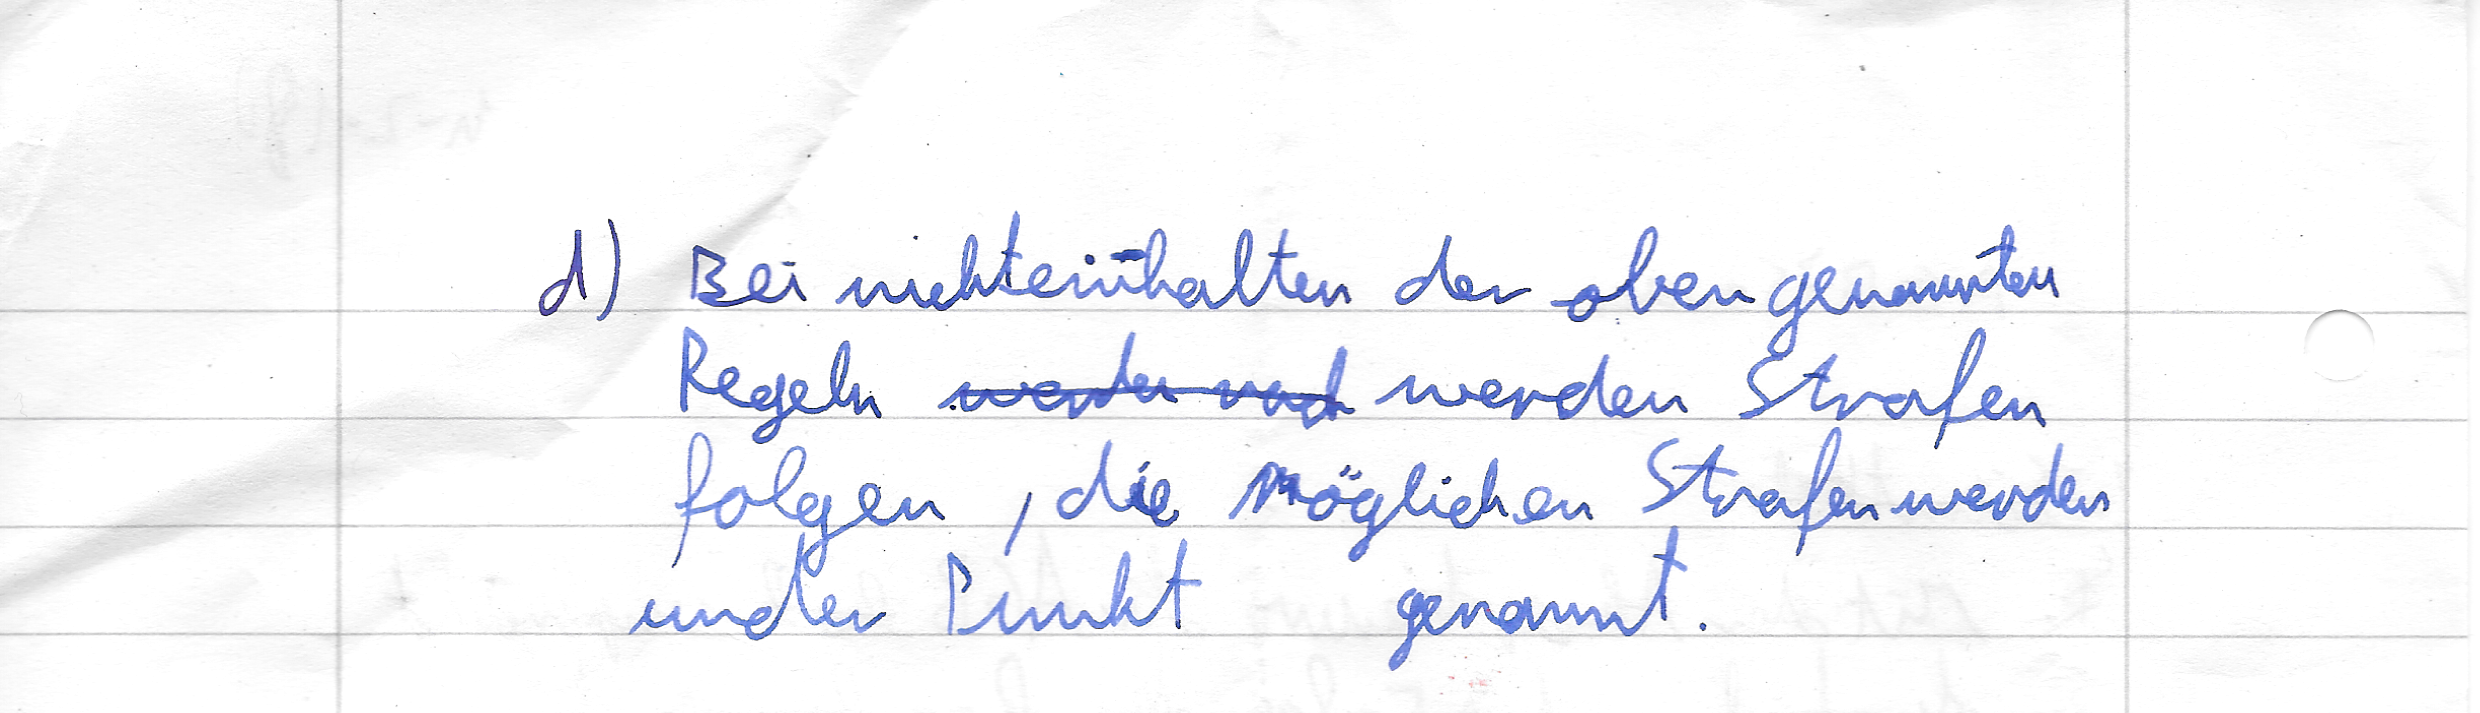 d) Bei nichteinhalten der oben genannten
Regeln werden Strafen
folgen, die möglichen Strafen werden
under Punkt genannt.